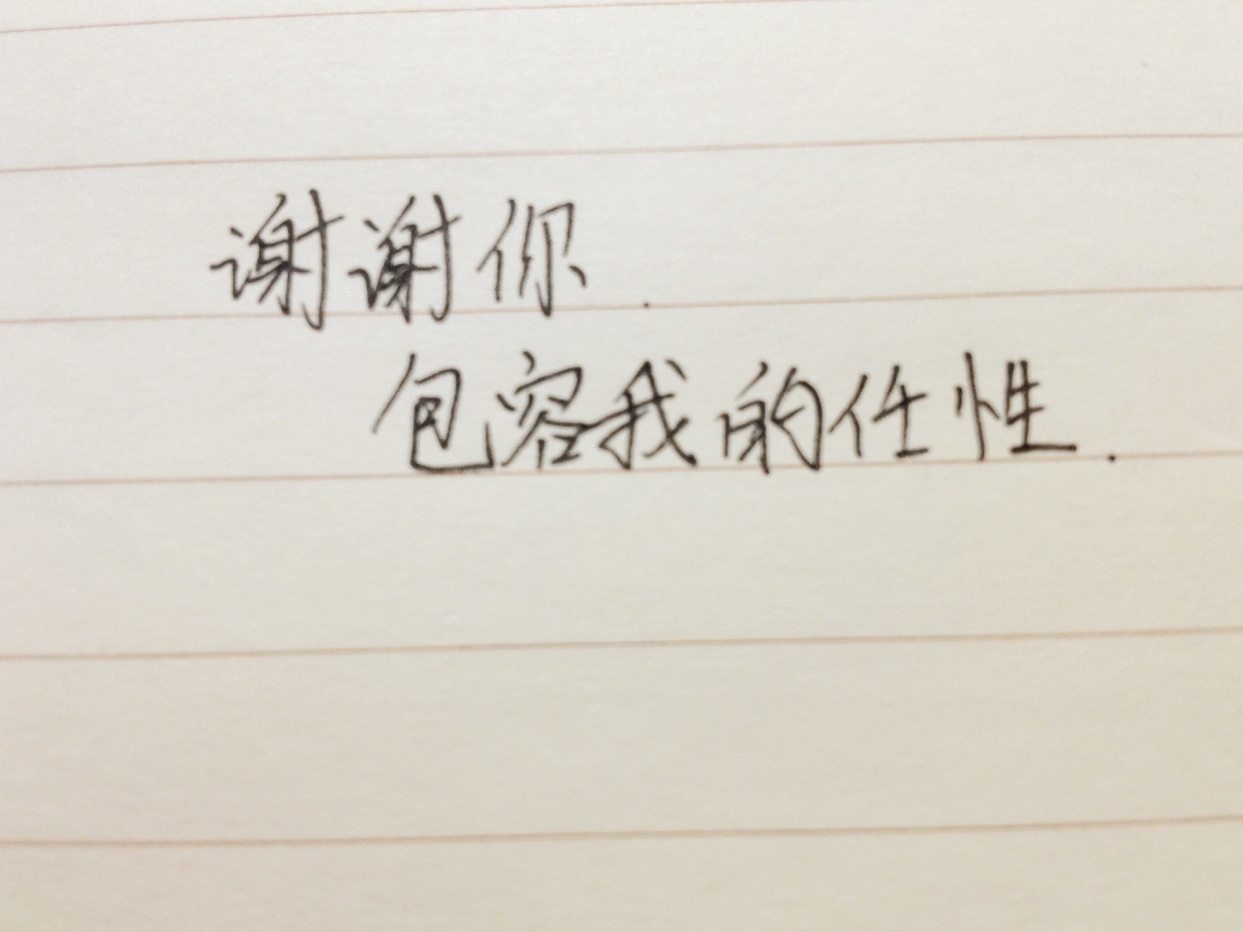 谢谢你.
包容我的任性.